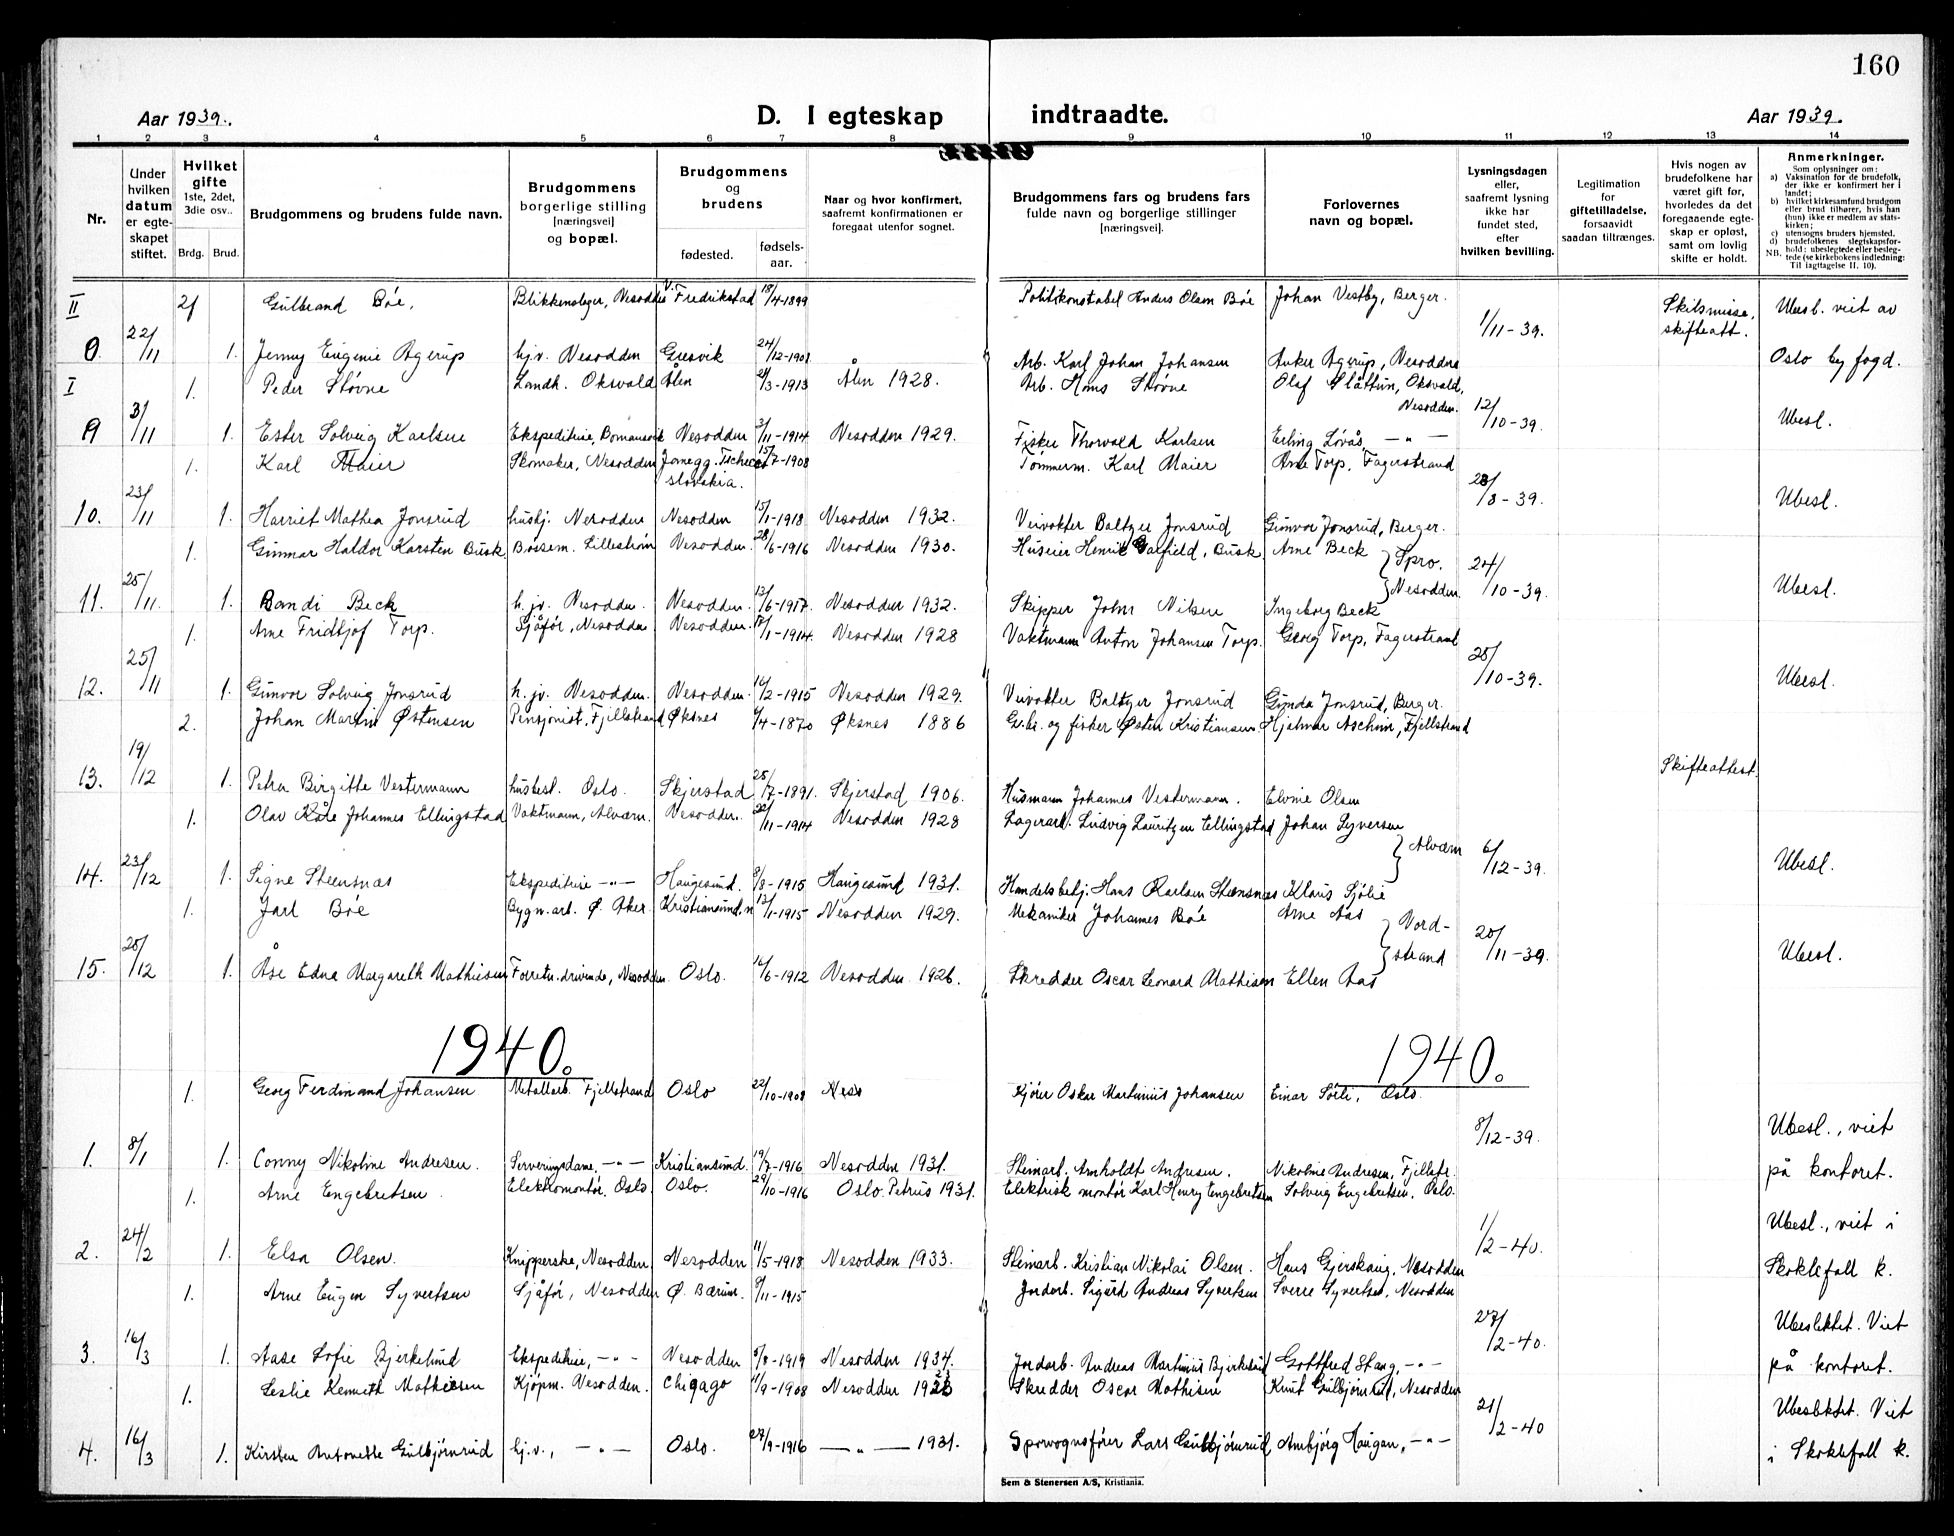 160
Aar 1939.
D. I egteskap indtraadte.
Aar 1939.
1 2 3 4 5 6 7 8 9 10 11 12 13 14
Nr.
Under hvilken datum er egteskapet stiftet.
Hvilket gifte 1ste, 2det, 3die osv..
Brdg. Brud.
Brudgommens og brudens fulde navn.
Brudgommens borgerlige stilling [næringsvei] og bopæl.
Brudgommens og brudens
fødested. fødsels-aar.
Naar og hvor konfirmert, saafremt konfirmationen er foregaat utenfor sognet.
Brudgommens fars og brudens fars fulde navn og borgerlige stillinger [næringsvei].
Forlovernes navn og bopæl.
Lysningsdagen eller, saafremt lysning ikke har fundet sted, efter hvilken bevilling.
Legitimation for giftetilladelse, forsaavidt saadan tiltrænges.
Hvis nogen av brudefolkene har været gift før, hvorledes da det foregaaende egteskap er opløst, samt om lovlig skifte er holdt.
Anmerkninger.
Som oplysninger om:
a) Vaksination for de brudefolk, der ikke er konfirmert her i landet;
b) hvilket kirkesamfund brudgom eller brud tilhører, hvis han (hun) ikke er medlem av statskirken;
c) utensogns bruders hjemsted.
d) brudefolkenes slegtskapsforhold: ubeslegtede eller beslegtede (se kirkebokens indledning: NB. Til iagttagelse II. 10).
II 2f Gulbrand Bøe, Blikkenslager, Nesodden v. Fredrikstad 15/4-1899 Politikonstabel Anders Olsen Bøe Johan Vestby, Berger. 1/11-39. Skilsmisse, skifteatt. Ubesl. viet av
8. 22/11 1. Jenny Eugenie Agerup hj.v. Nesodden Gresvik 24/12-1901 Arb. Karl Johan Johansen Anker Agerup, Nesodden Oslo byfogd.
I 1. Peder Støvne Landh. Oksvald Ålen 21/3-1913 Ålen 1928. Arb. Hans Støvne Olaf Slåttun, Oksval, Nesodden. 12/10-39. Ubesl.
9 3/11 1. Ester Solveig Karlsen Ekspeditrise, Bomansvik Nesodden 3/11-1914 Nesodden 1929. Fisker Thorvald Karlsen Erling Løvås, —"—
1. Karl Maier Skomaker, Nesodden Jonegg. Tschecoslovakia. 15/7-1908 Tømmerm. Karl Maier Arne Torp, Fagerstrand 28/8-39. Ubesl.
10. 23/11 1. Harriet Mathea Jonsrud husbj. Nesodden Nesodden 15/1-1918 Nesodden 1932. Veivokter Baltzer Jonsrud Gunvor Jonsrud, Berger.
1. Gunnar Haldor Karsten Busk Bossem. Lillestrøm Nesodden. 28/6-1916 Nesodden 1930. Huseier Henrik Garfield, Busk Arne Beck } Spro. Nesodden 24/10-39. Ubesl.
11. 25/11. 1. Bandi Beck h.jv. Nesodden. Nesodden. 13/6-1917. Nesodden 1932. Skipper John Nilsen Ingeborg Beck
1. Arne Fridtjof Torp. Sjåfør, Nesodden Nesodden. 17/1-1914. Nesodden 1928 Vaktmann Anton Johansen Torp. Georg Torp, Fagerstrand 25/10-39. Ubesl.
12. 25/11 1. Gunvor Solveig Jonsrud h.jv. Nesodden. Nesodden. 14/2-1915 Nesodden 1929. Veivokter Baltzer Jonsrud Gunda Jonsrud, Berger.
2. Johan Martin Østensen Pensjonist, Fjellstrand Øksnes 4/4-1870 Øksnes 1886 Gr.br. og fisker Østen Kristiansen Hjalmar Aschim, Fjellstrand Skifteattest.
13. 19/12 1. Petra Birgitte Vestermann husbest. Oslo. Skjerstad 25/7-1891. Skjerstad 1906. Husmann Johannes Vestermann. Elvine Olsen
1. Olav Kåre Johannes Ellingstad Vaktmann, Alværn. Nesodden. 22/11-1914 Nesodden 1928 Lagerarb. Ludvig Lauritzen Ellingstad Johan Syversen } Alværn 6/12-39. Ubesl.
14. 23/12 1. Signe Steensnæs Ekspeditrise —"— Haugesund. 9/8-1915 Haugesund 1931. Handelsbetj. Hans Karlsen Steensnæs Klaus Sjølie
1. Jarl Bøe Bygn.arb. Ø. Aker. Kristiansund.n 13/1-1915 Nesodden 1929. Mekaniker Johannes Bøe Arne Aas } Nordstrand 20/11-39. Ubesl.
15. 25/12 1. Åse Edna Margareth Mathiesen Forretn.drivende, Nesodden Oslo. 14/6-1912 Nesodden 1926. Skredder Oscar Leonard Mathisen Ellen Aas
1940. 1940.
1. Georg Ferdinand Johansen Metallarb. Fjellstrand Oslo 22/10-1908 Nes Kjører Oskar Martinius Johansen Einar Sørli, Oslo. 8/12-39. Ubesl., viet
1. 8/1 1. Conny Nikoline Andresen. Serveringsdame, —"— Kristiansund. 19/7-1916 Nesodden 1931. Steinarb. Arnholdt Andresen. Nikoline Andresen, Fjellstr. på kontoret.
1. Arne Engebretsen. Elektromontør. Oslo. Oslo. 29/10-1916 Oslo. Petrus 1931. Elektrisk montør Karl Henry Engebretsen Solveig Engebretsen, Oslo. 1/2-40. Ubesl., viet i
2. 24/2 1. Elsa Olsen. Knipperske, Nesodden Nesodden 11/5-1918 Nesodden 1933. Steinarb. Kristian Nikolai Olsen. Hans Gjerskaug, Nesodden Skoklefall k.
1. Arne Eugen Syvertsen Sjåfør, Nesodden Ø. Bærum. 9/11-1915 Jordarb. Sigurd Andreas Syvertsen Sverre Syvertsen, Nesodden 27/2-40. Ubeslektet. Viet
3. 16/3 1. Aase Sofie Bjerkelund Ekspeditrise, —"— Nesodden 5/8-1919 Nesodden 1934. Jordarb. Andreas Martinius Bjerkelund Gottfred Stang, —"— på kontoret.
1. Leslie Kenneth Mathiesen Kjøpm. Nesodden. Chicago 11/9-1908 Nesodden 1923 Skredder Oscar Mathisen Knut Gulbjørnrud, Nesodden 21/2-40 Ubeslektet. Viet
4. 16/3 1. Kirsten Antonette Gulbjørnrud hj.v., —"— Oslo. 27/9-1916 —"— 1931. Sporvognsfører Lars Gulbjørnrud Arnbjørg Haugan, —"— i Skoklefall k.
Sem & Stenersen A/S, Kristiania.